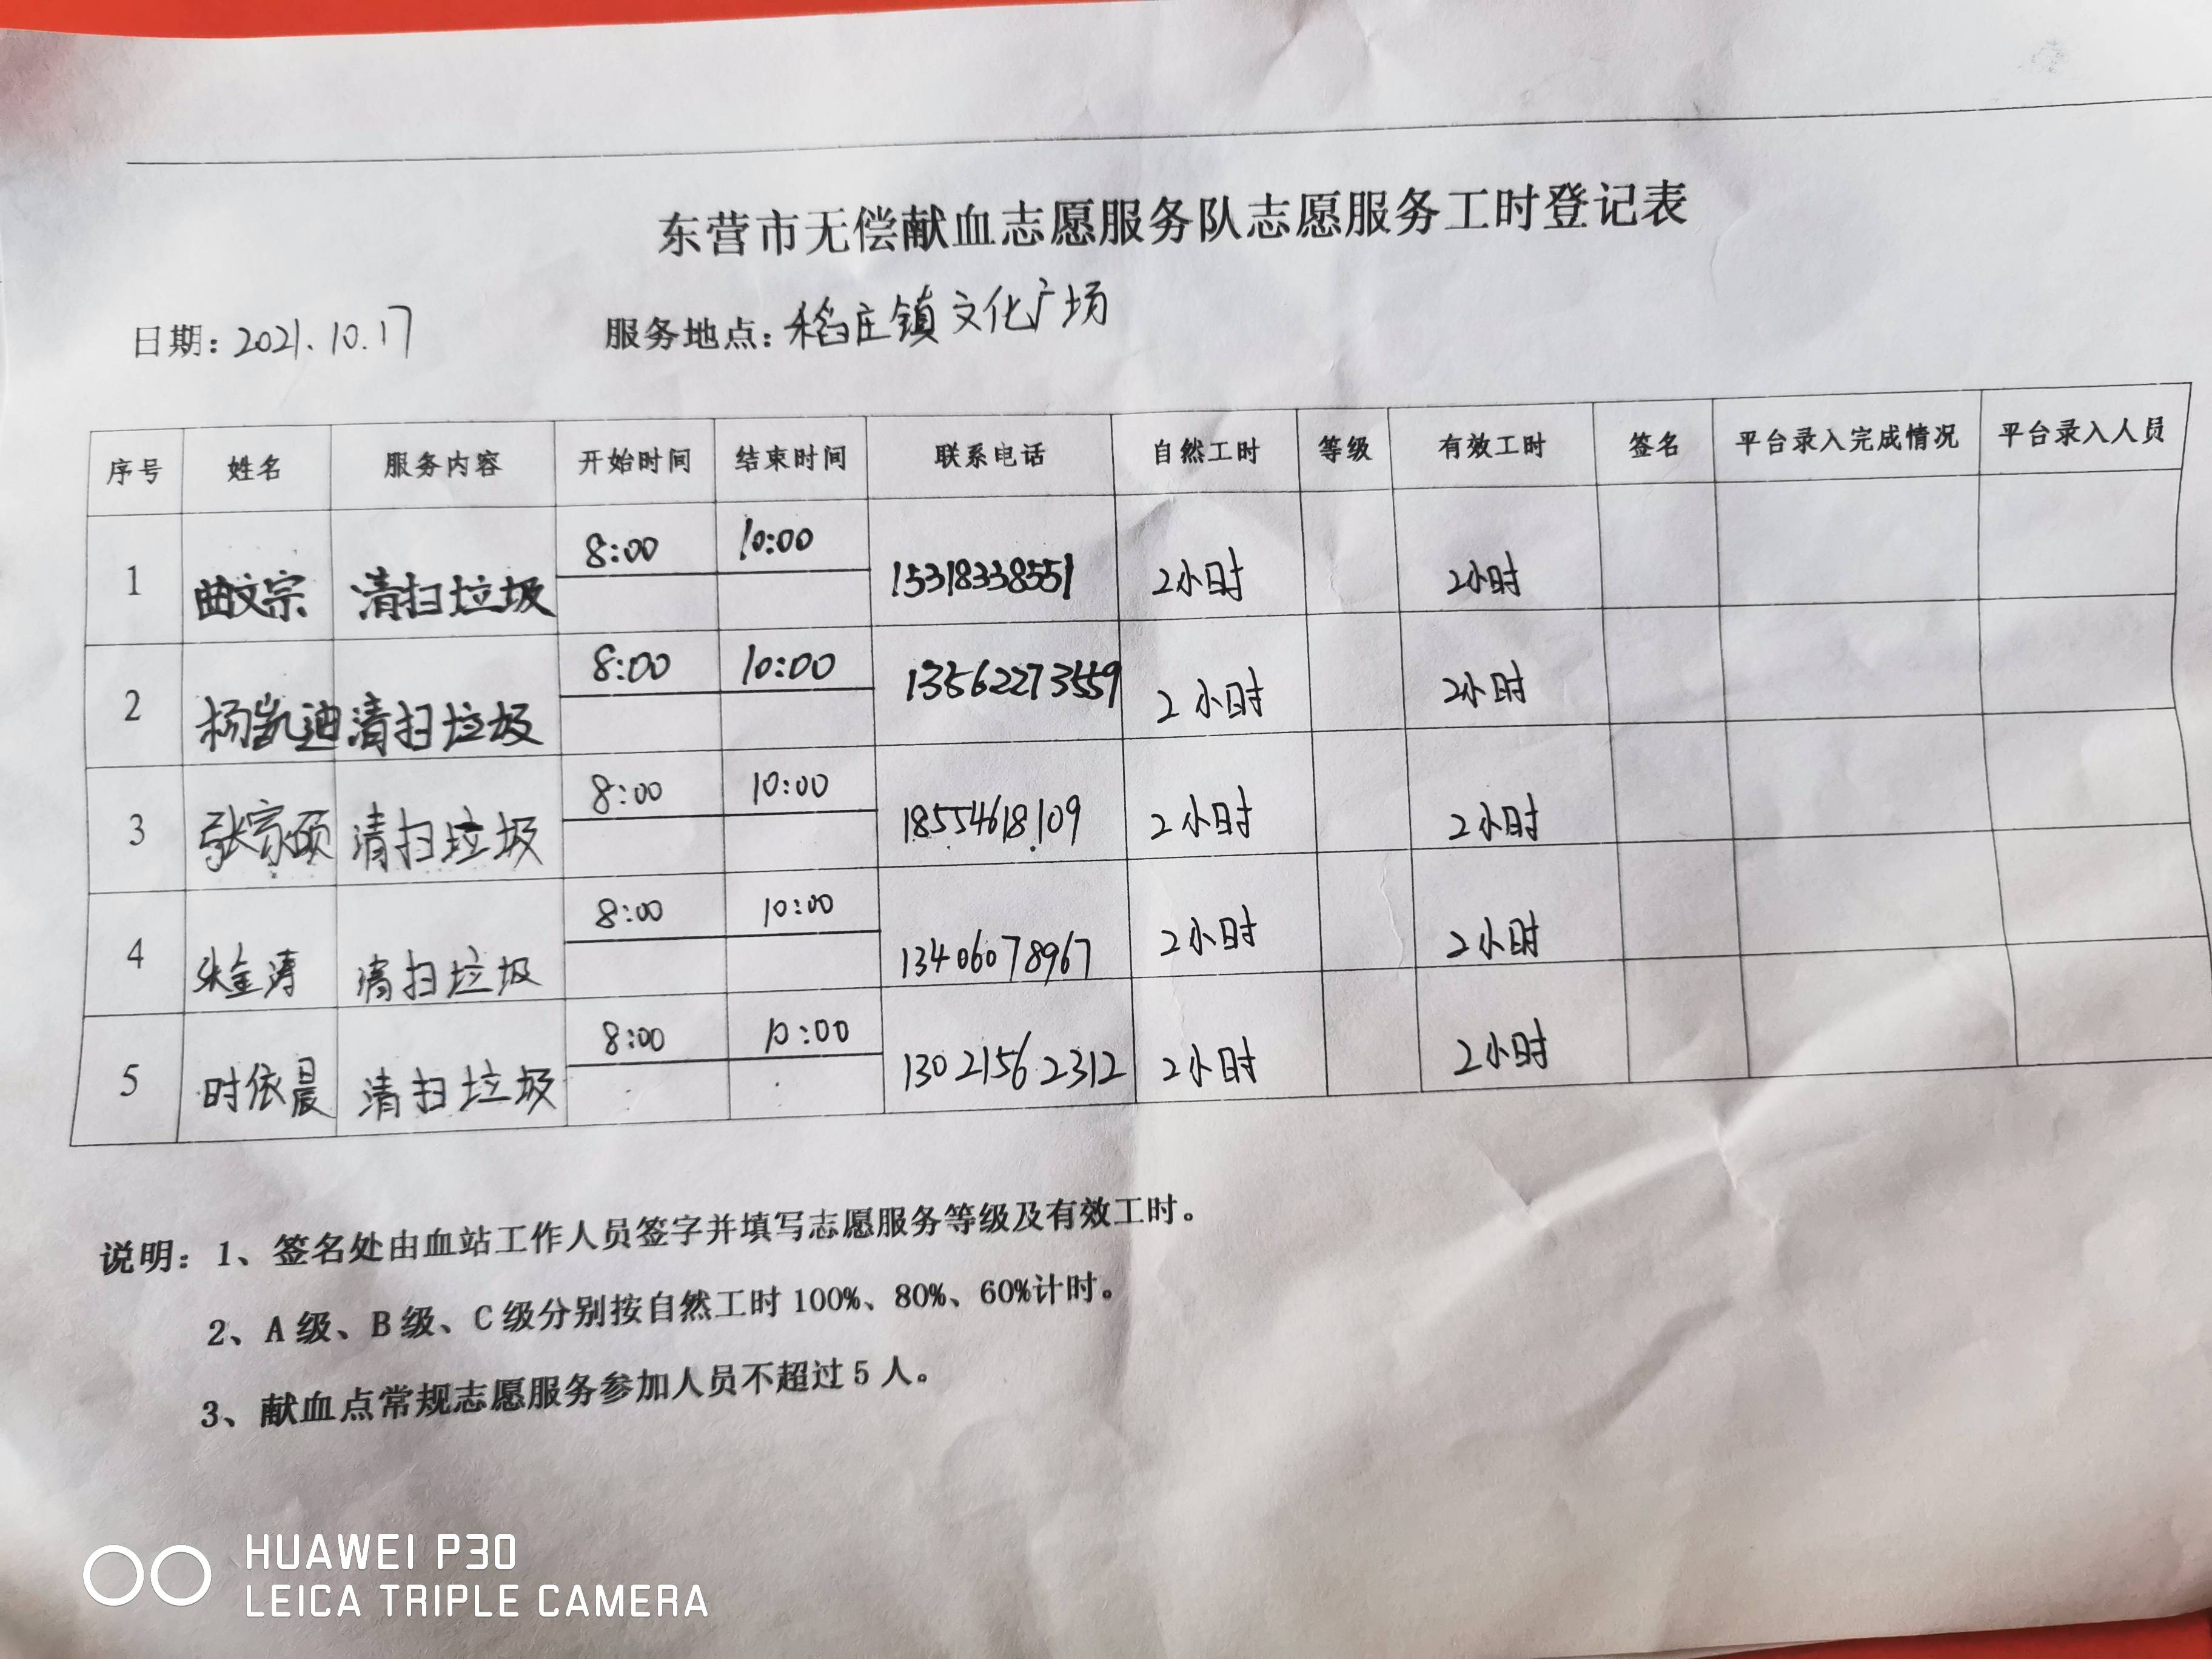 东营市无偿献血志愿服务队志愿服务工时登记表
日期：2021.10.17 服务地点：稻庄镇文化广场
序号 姓名 服务内容 开始时间 结束时间 联系电话 自然工时 等级 有效工时 签名 平台录入完成情况 平台录入人员
1 曲文宗 清扫垃圾 8:00 10:00 15318338551 2小时 2小时
2 杨凯迪 清扫垃圾 8:00 10:00 13562273559 2小时 2小时
3 张家硕 清扫垃圾 8:00 10:00 18554618109 2小时 2小时
4 张金涛 清扫垃圾 8:00 10:00 13406078967 2小时 2小时
5 时依晨 清扫垃圾 8:00 10:00 13021562312 2小时 2小时
说明：1、签名处由血站工作人员签字并填写志愿服务等级及有效工时。
2、A级、B级、C级分别按自然工时100%、80%、60%计时。
3、献血点常规志愿服务参加人员不超过5人。
HUAWEI P30
LEICA TRIPLE CAMERA